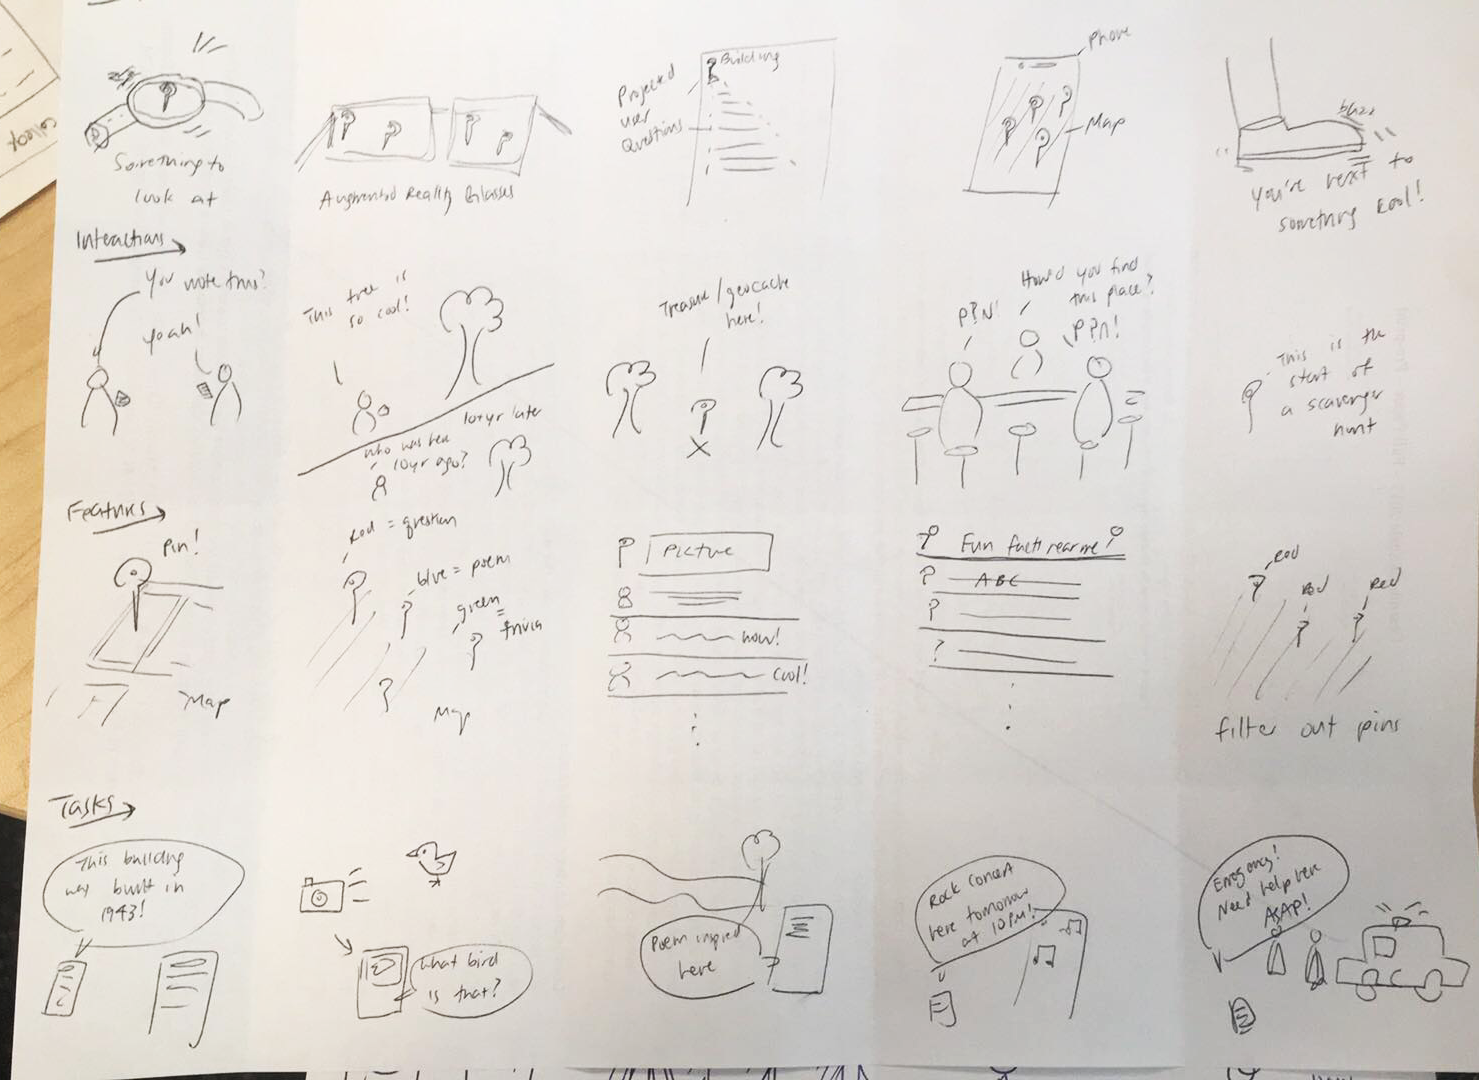 Something to
look at
Augmented Reality Glasses
Projected
User
Questions
Building
Phone
Map
buzz
You're next to
something cool!
Interactions
You wrote this?
Yeah!
This tree is
so cool!
10+yr later
who was here
10yr ago?
Treasure/geocache
here!
P?N!
How'd you find
this place?
P?N!
This is the
start of
a scavenger
hunt
Features
Pin!
Map
Red = question
blue = poem
green
=
trivia
Map
Picture
wow!
cool!
Fun facts near me
ABC
Red
Red
Red
filter out pins
Tasks
This building
was built in
1943!
What bird
is that?
Poem inspired
here
Rock Concert
here tomorrow
at 10PM!
Emergency!
Need help here
ASAP!